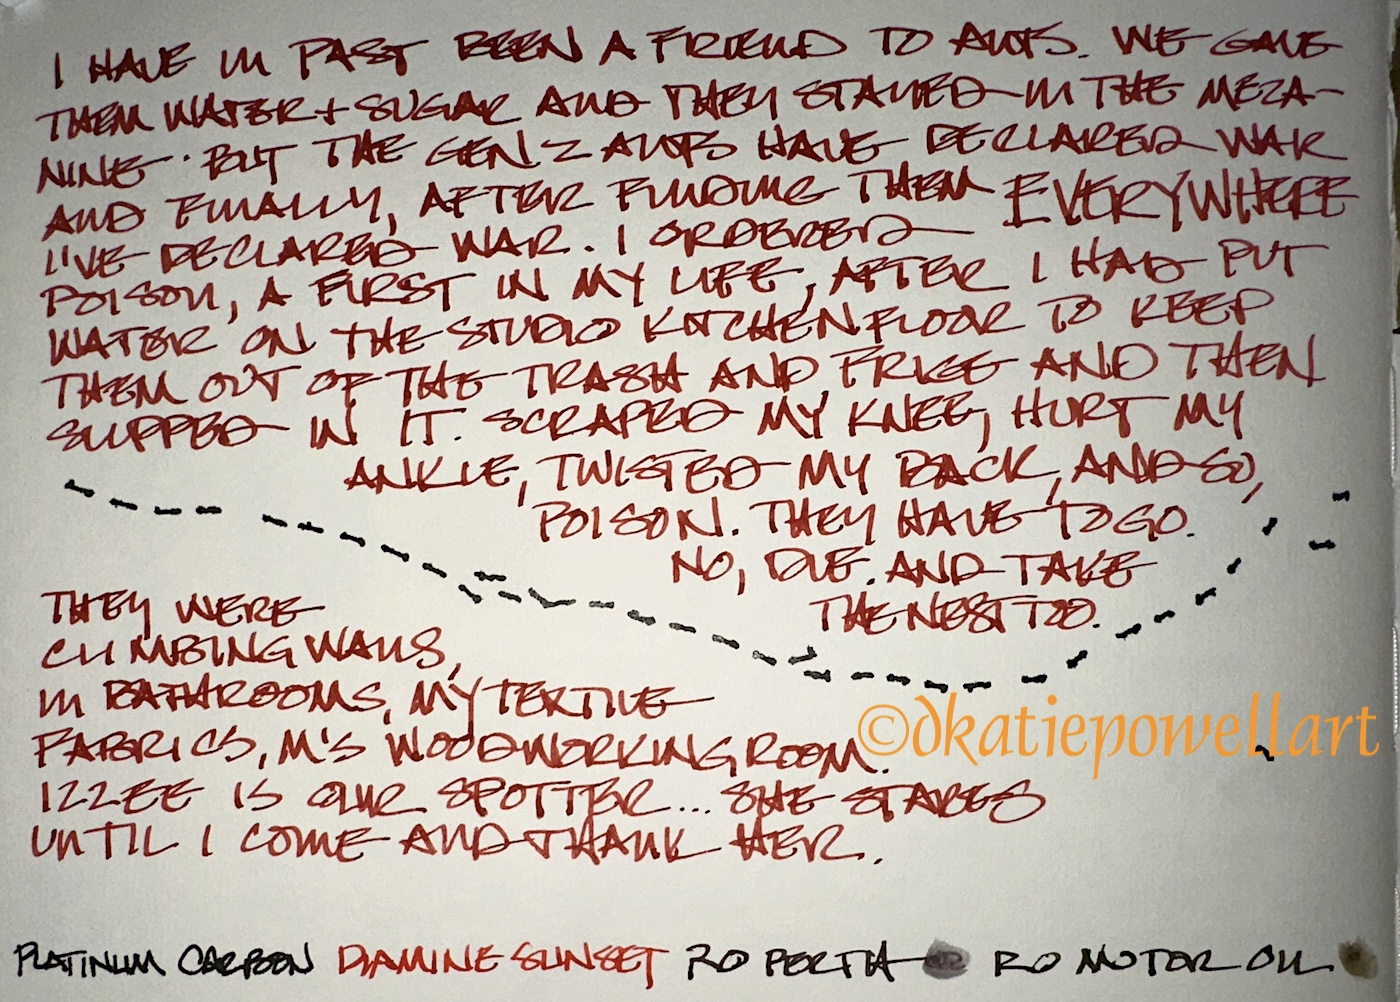 I HAVE IN PAST BEEN A FRIEND TO ANTS. WE GAVE
THEM WATER + SUGAR AND THEY STAYED IN THE MEZA-
NINE. BUT THE GEN Z ANTS HAVE DECLARED WAR
AND FINALLY, AFTER FINDING THEM EVERYWHERE
I'VE DECLARED WAR. I ORDERED
POISON, A FIRST IN MY LIFE, AFTER I HAD PUT
WATER ON THE STUDIO KITCHEN FLOOR TO KEEP
THEM OUT OF THE TRASH AND FRIGE AND THEN
SLIPPED IN IT. SCRAPED MY KNEE, HURT MY
ANKLE, TWISTED MY BACK, AND SO,
POISON. THEY HAVE TO GO.
NO, DIE. AND TAKE
THE NEST TOO.
THEY WERE
CLIMBING WALLS,
IN BATHROOMS, MY TEXTILE
FABRICS, M'S WOODWORKING ROOM.
IZZEE IS OUR SPOTTER... SHE STARES
UNTIL I COME AND THANK HER.
©dkatiepowellart
PLATINUM CARBON DIAMINE SUNSET RO PERTH RO MOTOR OIL